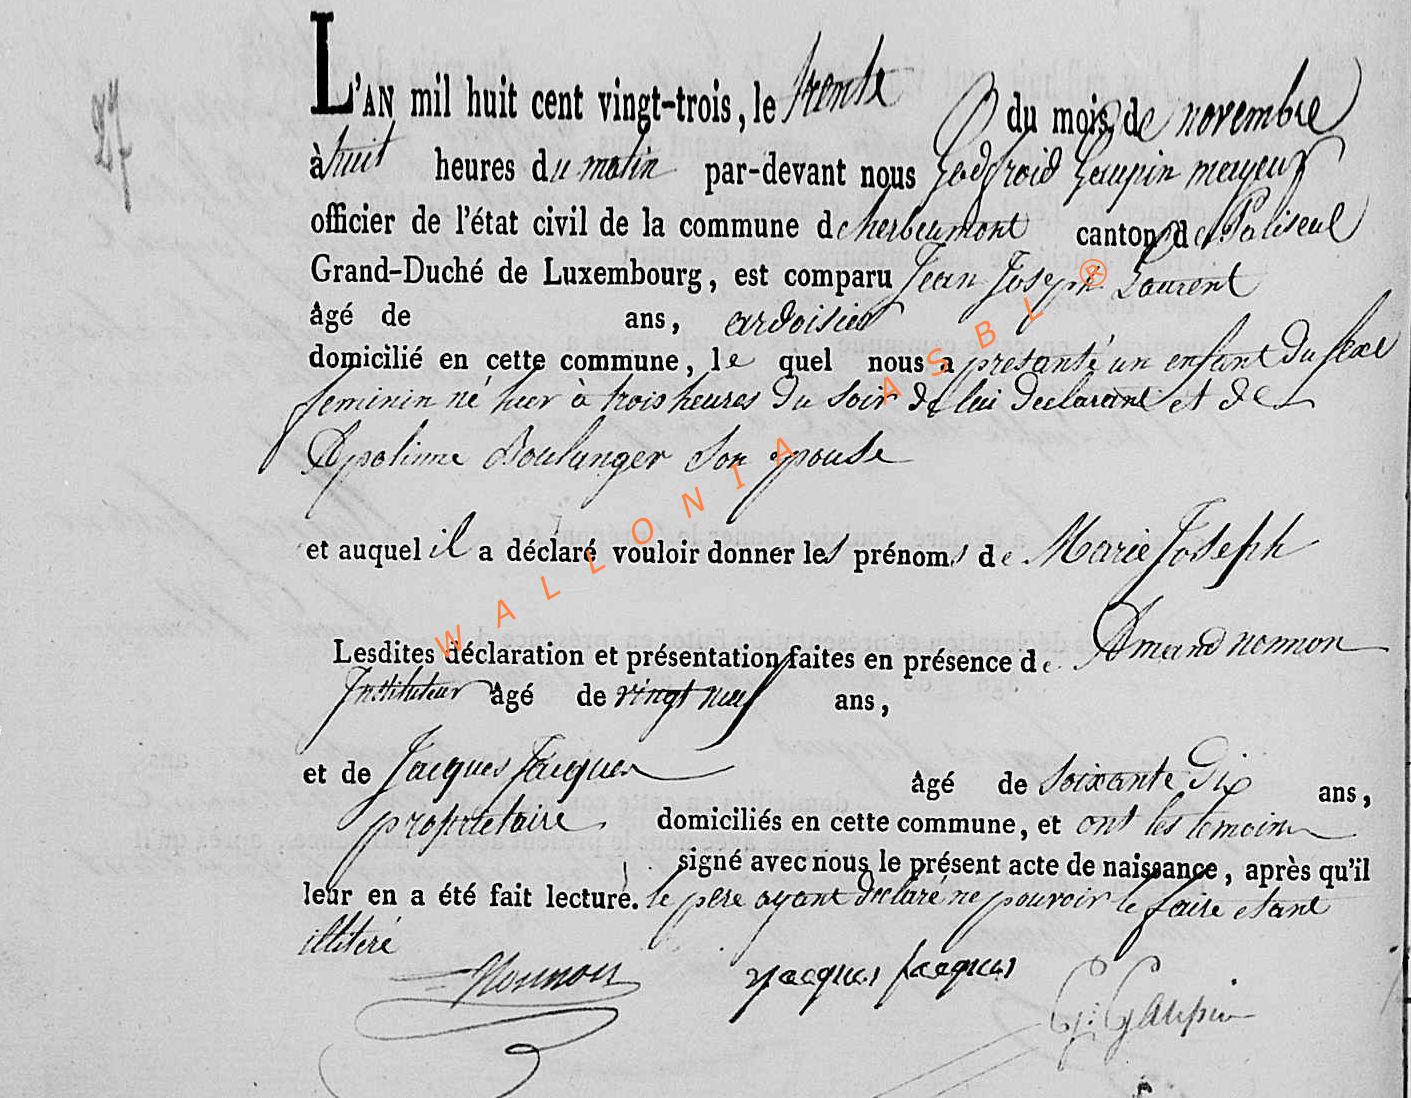 27
L'AN mil huit cent vingt-trois, le trente du mois de novembre
à huit heures du matin par-devant nous Godfroid Gaupin mayeur
officier de l'état civil de la commune de herbeumont canton de Paliseul
Grand-Duché de Luxembourg, est comparu Jean Joseph Laurent
âgé de ans, ardoisier
domicilié en cette commune, le quel nous a presanté un enfant du sexe
feminin né hier à trois heures du soir de lui declarant et de
Apolinne Boulanger son epouse
et auquel il a déclaré vouloir donner les prénoms de Marie Joseph
Lesdites déclaration et présentation faites en présence de Amand nonnon
Instituteur âgé de vingt neuf ans,
et de Jacques Jacques âgé de soixante dix ans,
propriétaire domiciliés en cette commune, et ont les temoins
signé avec nous le présent acte de naissance, après qu'il
leur en a été fait lecture. le pere ayant declaré ne pouvoir le faire etant
illiteré
Nonnon Jacques Jacques G: Gaupin
WALLONIA ASBL ®